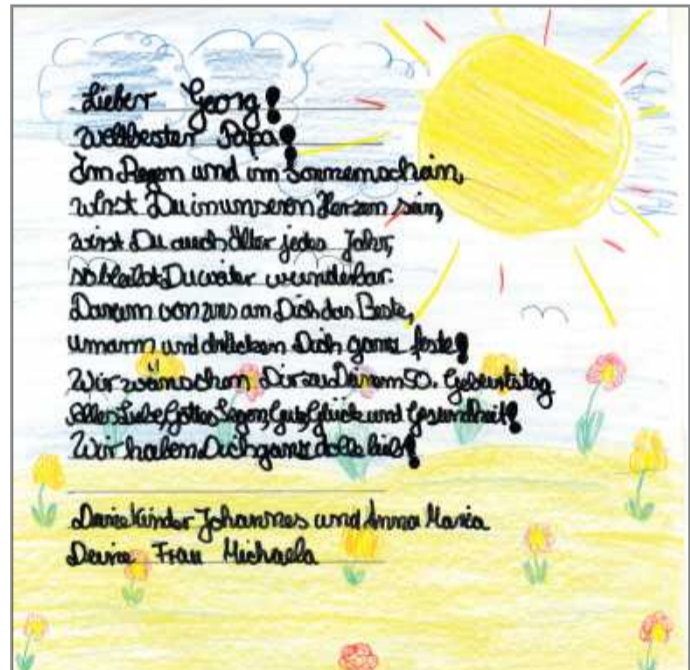 Lieber Georg!
Weltbester Papa!
Im Regen und im Sonnenschein,
wirst Du in unseren Herzen sein,
wirst Du auch älter jedes Jahr,
so bleibst Du weiter wunderbar.
Darum von uns an Dich das Beste,
umarm und drücken Dich ganz feste!
Wir wünschen Dir zu Deinem 50. Geburtstag
Alles Liebe, Gottes Segen, Glück und Gesundheit!
Wir haben Dich ganz doll lieb!
Deine Kinder Johannes und Anna Maria
Deine Frau Michaela